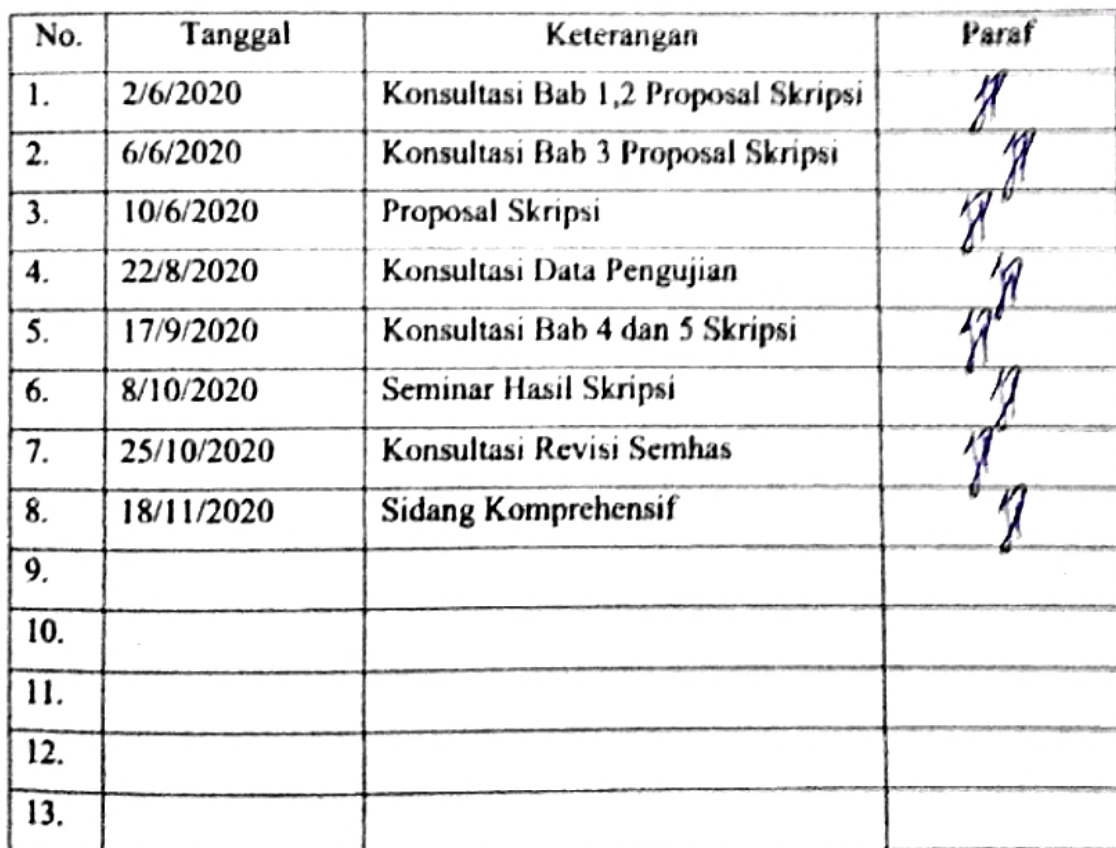 No. Tanggal Keterangan Paraf
1. 2/6/2020 Konsultasi Bab 1,2 Proposal Skripsi
2. 6/6/2020 Konsultasi Bab 3 Proposal Skripsi
3. 10/6/2020 Proposal Skripsi
4. 22/8/2020 Konsultasi Data Pengujian
5. 17/9/2020 Konsultasi Bab 4 dan 5 Skripsi
6. 8/10/2020 Seminar Hasil Skripsi
7. 25/10/2020 Konsultasi Revisi Semhas
8. 18/11/2020 Sidang Komprehensif
9.
10.
11.
12.
13.